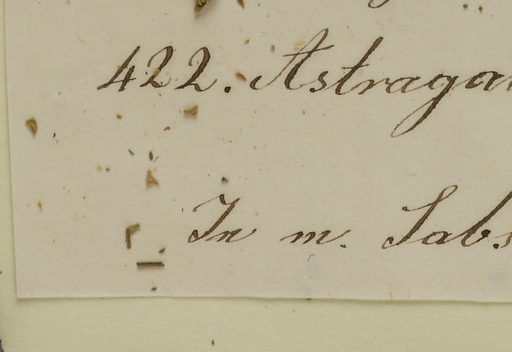 422. Astraga
In m. Sabs